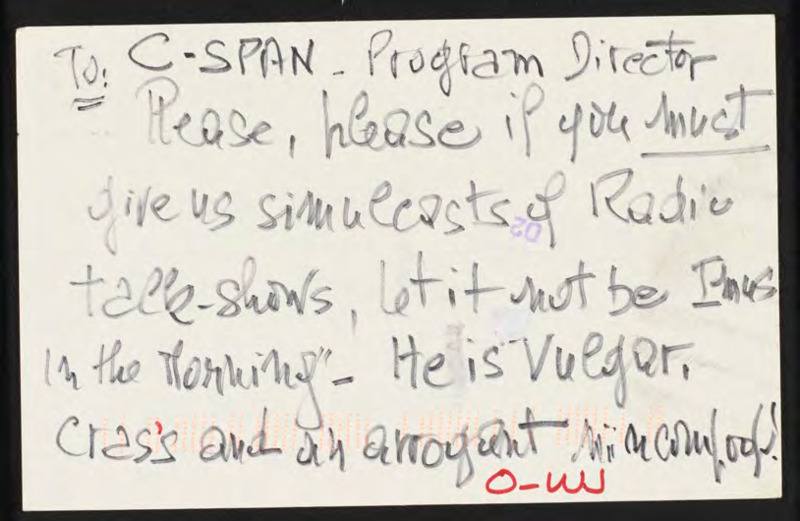 To: C-SPAN - Program Director
Please, please if you must
give us simulcasts of Radio
talk-shows, let it not be Imus
In the Morning" - He is Vulgar,
Crass and an arrogant nincompoop!
O-W